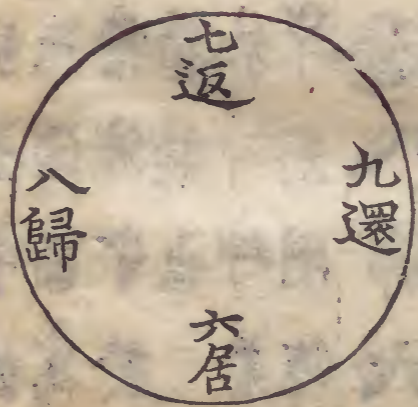 七返
九還
八歸
六居